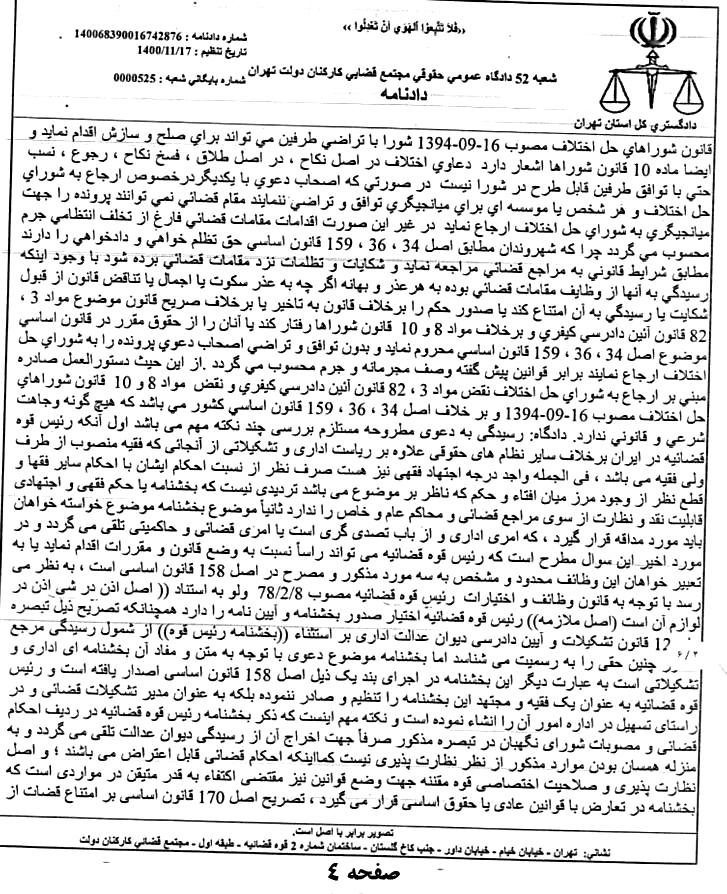 ««فَلا تَتَّبِعُوا الْهَوي أَنْ تَعْدِلُوا »
شماره دادنامه : 140068390016742876
تاریخ تنظیم : 1400/11/17
شماره بایگاني شعبه : 0000525
شعبه 52 دادگاه عمومي حقوقي مجتمع قضایي کارکنان دولت تهران
دادنامه
دادگستري کل استان تهران
قانون شوراهاي حل اختلاف مصوب 16-09-1394 شورا با تراضي طرفین مي تواند براي صلح و سازش اقدام نماید و
ایضا ماده 10 قانون شوراها اشعار دارد دعاوي اختلاف در اصل نکاح ، در اصل طلاق ، فسخ نکاح ، رجوع ، نسب
حتي با توافق طرفین قابل طرح در شورا نیست در صورتي که اصحاب دعوي با یکدیگردرخصوص ارجاع به شوراي
حل اختلاف و هر شخص یا موسسه اي براي میانجیگري توافق و تراضي ننمایند مقام قضائي نمي توانند پرونده را جهت
میانجیگري به شوراي حل اختلاف ارجاع نماید در غیر این صورت اقدامات مقامات قضائي فارغ از تخلف انتظامي جرم
محسوب مي گردد چرا که شهروندان مطابق اصل 34 ، 36 ، 159 قانون اساسي حق تظلم خواهي و دادخواهي را دارند
مطابق شرایط قانوني به مراجع قضائي مراجعه نماید و شکایات و تظلمات نزد مقامات قضائي برده شود با وجود اینکه
رسیدگي به آنها از وظایف مقامات قضائي بوده به هرعذر و بهانه اگر چه به عذر سکوت یا اجمال یا تناقض قانون از قبول
شکایت یا رسیدگي به آن امتناع کند یا صدور حکم را برخلاف قانون به تاخیر یا برخلاف صریح قانون موضوع مواد 3 ،
82 قانون آئین دادرسي کیفري و برخلاف مواد 8 و 10 قانون شوراها رفتار کند یا آنان را از حقوق مقرر در قانون اساسي
موضوع اصل 34 ، 36 ، 159 قانون اساسي محروم نماید و بدون توافق و تراضي اصحاب دعوي پرونده را به شوراي حل
اختلاف ارجاع نمایند برابر قوانین پیش گفته وصف مجرمانه و جرم محسوب مي گردد .از این حیث دستورالعمل صادره
مبني بر ارجاع به شوراي حل اختلاف نقض مواد 3 ، 82 قانون آئین دادرسي کیفري و نقض مواد 8 و 10 قانون شوراهاي
حل اختلاف مصوب 16-09-1394 و بر خلاف اصل 34 ، 36 ، 159 قانون اساسي کشور مي باشد که هیچ گونه وجاهت
شرعي و قانوني ندارد. دادگاه: رسیدگي به دعوی مطروحه مستلزم بررسی چند نکته مهم می باشد اول آنکه رئیس قوه
قضائیه در ایران برخلاف سایر نظام های حقوقی علاوه بر ریاست اداری و تشکیلاتی از آنجائی که فقیه منصوب از طرف
ولی فقیه می باشد ، فی الجمله واجد درجه اجتهاد فقهی نیز هست صرف نظر از نسبت احکام ایشان با احکام سایر فقها و
قطع نظر از وجود مرز میان افتاء و حکم که ناظر بر موضوع می باشد تردیدی نیست که بخشنامه یا حکم فقهی و اجتهادی
قابلیت نقد و نظارت از سوی مراجع قضائی و محاکم عام و خاص را ندارد ثانیاً موضوع بخشنامه موضوع خواسته خواهان
باید مورد مداقه قرار گیرد ، که امری اداری و از باب تصدی گری است یا امری قضائی و حاکمیتی تلقی می گردد و در
مورد اخیر این سوال مطرح است که رئیس قوه قضائیه می تواند راساً نسبت به وضع قانون و مقررات اقدام نماید یا به
تعبیر خواهان این وظائف محدود و مشخص به سه مورد مذکور و مصرح در اصل 158 قانون اساسی است ، به نظر می
رسد با توجه به قانون وظائف و اختیارات رئیس قوه قضائیه مصوب 78/2/8 ولو به استناد (( اصل اذن در شی اذن در
لوازم آن است (اصل ملازمه)) رئیس قوه قضائیه اختیار صدور بخشنامه و آیین نامه را دارد همچنانکه تصریح ذیل تبصره
12 قانون تشکیلات و آیین دادرسی دیوان عدالت اداری بر استثناء ((بخشنامه رئیس قوه)) از شمول رسیدگی مرجع
۶/۲ چنین حقی را به رسمیت می شناسد اما بخشنامه موضوع دعوی با توجه به متن و مفاد آن بخشنامه ای اداری و
تشکیلاتی است به عبارت دیگر این بخشنامه در اجرای بند یک ذیل اصل 158 قانون اساسی اصدار یافته است و رئیس
قوه قضائیه به عنوان یک فقیه و مجتهد این بخشنامه را تنظیم و صادر ننموده بلکه به عنوان مدیر تشکیلات قضائی و در
راستای تسهیل در اداره امور آن را انشاء نموده است و نکته مهم اینست که ذکر بخشنامه رئیس قوه قضائیه در ردیف احکام
قضائی و مصوبات شورای نگهبان در تبصره مذکور صرفاً جهت اخراج آن از رسیدگی دیوان عدالت تلقی می گردد و به
منزله همسان بودن موارد مذکور از نظر نظارت پذیری نیست کمااینکه احکام قضائی قابل اعتراض می باشند ؛ و اصل
نظارت پذیری و صلاحیت اختصاصی قوه مقننه جهت وضع قوانین نیز مقتضی اکتفاء به قدر متیقن در مواردی است که
بخشنامه در تعارض با قوانین عادی یا حقوق اساسی قرار می گیرد ، تصریح اصل 170 قانون اساسی بر امتناع قضات از
تصویر برابر با اصل است.
نشاني: تهران - خیابان خیام - خیابان داور - جنب کاخ گلستان - ساختمان شماره 2 قوه قضائیه - طبقه اول - مجتمع قضائي کارکنان دولت
صفحه ٤